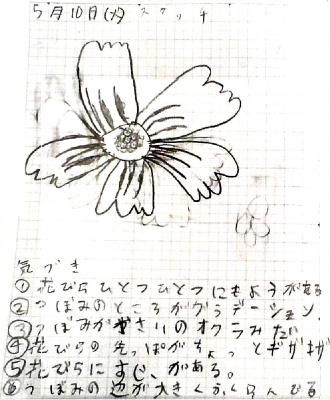 5月10日(火) スケッチ
気づき
①花びらひとつひとつにもようがある
②つぼみのところがグラデーション
③つぼみがやさいのオクラみたい
④花びらの先っぽがちょっとギザギザ
⑤花びらにすじがある。
⑥つぼみの辺が大きくふくらんでる